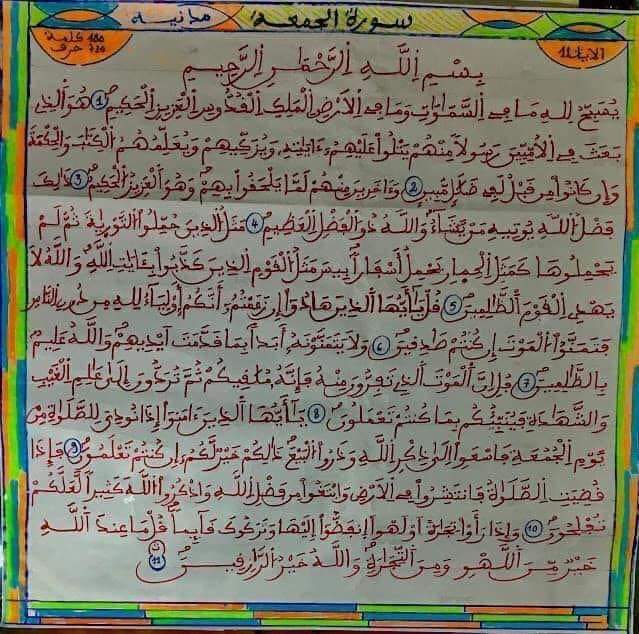 سورة الجمعة مدنية
180 كلمة
720 حرف
الآيات 11
بِسْمِ اِ۬للَّهِ اِ۬لرَّحْمَٰنِ اِ۬لرَّحِيمِ
يُسَبِّحُ لِلهِ مَا فِے اِ۬لسَّمَٰوَٰتِ وَمَا فِے اِ۬لَارْضِ اِ۬لْمَلِكِ اِ۬لْقُدُّوسِ اِ۬لْعَزِيزِ اِ۬لْحَكِيمِۖ 1 هُوَ اَ۬لذِے
بَعَثَ فِے اِ۬لُامِّيِّـۧنَ رَسُولاٗ مِّنْهُمْ يَتْلُواْ عَلَيْهِمُۥٓ ءَايَٰتِهِۦ وَيُزَكِّيهِمْ وَيُعَلِّمُهُمُ اُ۬لْكِتَٰبَ وَالْحِكْمَةَ
وَإِن كَانُواْ مِن قَبْلُ لَفِے ضَلَٰلٖ مُّبِينٖ 2 وَءَاخَرِينَ مِنْهُمْ لَمَّا يَلْحَقُواْ بِهِمْ وَهُوَ اَ۬لْعَزِيزُ اُ۬لْحَكِيمُۖ 3 ذَٰلِكَ
فَضْلُ اُ۬للَّهِ يُوتِيهِ مَنْ يَّشَآءُۖ وَاللَّهُ ذُو اُ۬لْفَضْلِ اِ۬لْعَظِيمِۖ 4 مَثَلُ اُ۬لذِينَ حُمِّلُواْ اُ۬لتَّوْر۪يٰةَ ثُمَّ لَمْ
يَحْمِلُوهَا كَمَثَلِ اِ۬لْحِم۪ارِ يَحْمِلُ أَسْفَاراَۢ بِيسَ مَثَلُ اُ۬لْقَوْمِ اِ۬لذِينَ كَذَّبُواْ بِـَٔايَٰتِ اِ۬للَّهِۖ وَاللَّهُ لَا
يَهْدِے اِ۬لْقَوْمَ اَ۬لظَّٰلِمِينَۖ 5 قُلْ يَٰٓأَيُّهَا اَ۬لذِينَ هَادُوٓاْ إِن زَعَمْتُمُۥٓ أَنَّكُمُۥٓ أَوْلِيَآءُ لِلهِ مِن دُونِ اِ۬لنَّاسِ
فَتَمَنَّوُاْ اُ۬لْمَوْتَ إِن كُنتُمْ صَٰدِقِينَۖ 6 وَلَا يَتَمَنَّوْنَهُۥٓ أَبَداَۢ بِمَا قَدَّمَتَ اَيْدِيهِمْۖ وَاللَّهُ عَلِيمُۢ
بِالظَّٰلِمِينَۖ 7 قُلِ اِنَّ اَ۬لْمَوْتَ اَ۬لذِے تَفِرُّونَ مِنْهُ فَإِنَّهُۥ مُلَٰقِيكُمْ ثُمَّ تُرَدُّونَ إِلَىٰ عَٰلِمِ اِ۬لْغَيْبِ
وَالشَّهَٰدَةِ فَيُنَبِّئُكُم بِمَا كُنتُمْ تَعْمَلُونَۖ 8 يَٰٓأَيُّهَا اَ۬لذِينَ ءَامَنُوٓاْ إِذَا نُودِيَ لِلصَّلَوٰةِ مِنْ
يَّوْمِ اِ۬لْجُمُعَةِ فَاسْعَوِاْ اِلَىٰ ذِكْرِ اِ۬للَّهِ وَذَرُواْ اُ۬لْبَيْعَۖ ذَٰلِكُمْ خَيْرٞ لَّكُمُۥٓ إِن كُنتُمْ تَعْلَمُونَۖ 9 فَإِذَا
قُضِيَتِ اِ۬لصَّلَوٰةُ فَانتَشِرُواْ فِے اِ۬لَارْضِ وَابْتَغُواْ مِن فَضْلِ اِ۬للَّهِ وَاذْكُرُواْ اُ۬للَّهَ كَثِيراٗ لَّعَلَّكُمْ
تُفْلِحُونَۖ 10 وَإِذَا رَأَوْاْ تِجَٰرَةً اَوْ لَهْواً اِ۪نفَضُّوٓاْ إِلَيْهَا وَتَرَكُوكَ قَآئِماٗۖ قُلْ مَا عِندَ اَ۬للَّهِ
خَيْرٞ مِّنَ اَ۬للَّهْوِ وَمِنَ اَ۬لتِّجَٰرَةِۖ وَاللَّهُ خَيْرُ اُ۬لرَّٰزِقِينَۖ 11